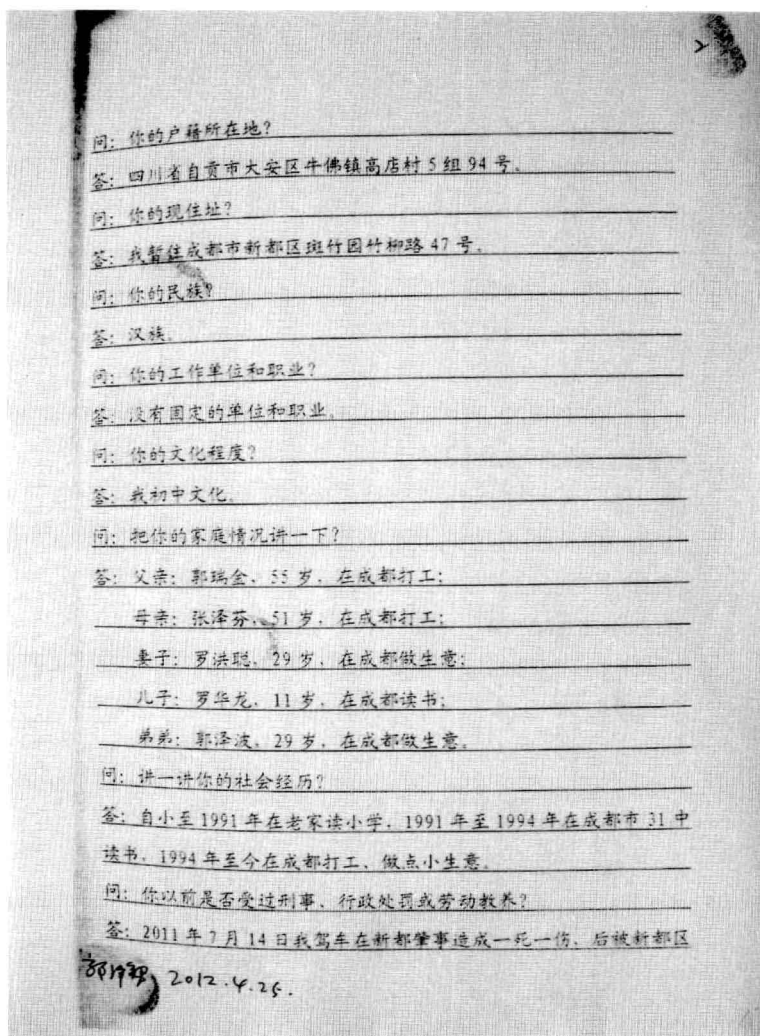 2
问：你的户籍所在地？
答：四川省自贡市大安区牛佛镇高店村5组94号。
问：你的现住址？
答：我暂住成都市新都区斑竹园竹柳路47号。
问：你的民族？
答：汉族。
问：你的工作单位和职业？
答：没有固定的单位和职业。
问：你的文化程度？
答：我初中文化。
问：把你的家庭情况讲一下？
答：父亲：郭瑞金，55岁，在成都打工；
母亲：张泽芬，51岁，在成都打工；
妻子：罗洪聪，29岁，在成都做生意；
儿子：罗华龙，11岁，在成都读书；
弟弟：郭泽波，29岁，在成都做生意。
问：讲一讲你的社会经历？
答：自小至1991年在老家读小学，1991年至1994年在成都市31中
读书，1994年至今在成都打工、做点小生意。
问：你以前是否受过刑事、行政处罚或劳动教养？
答：2011年7月14日我驾车在新都肇事造成一死一伤，后被新都区
2012.4.25.